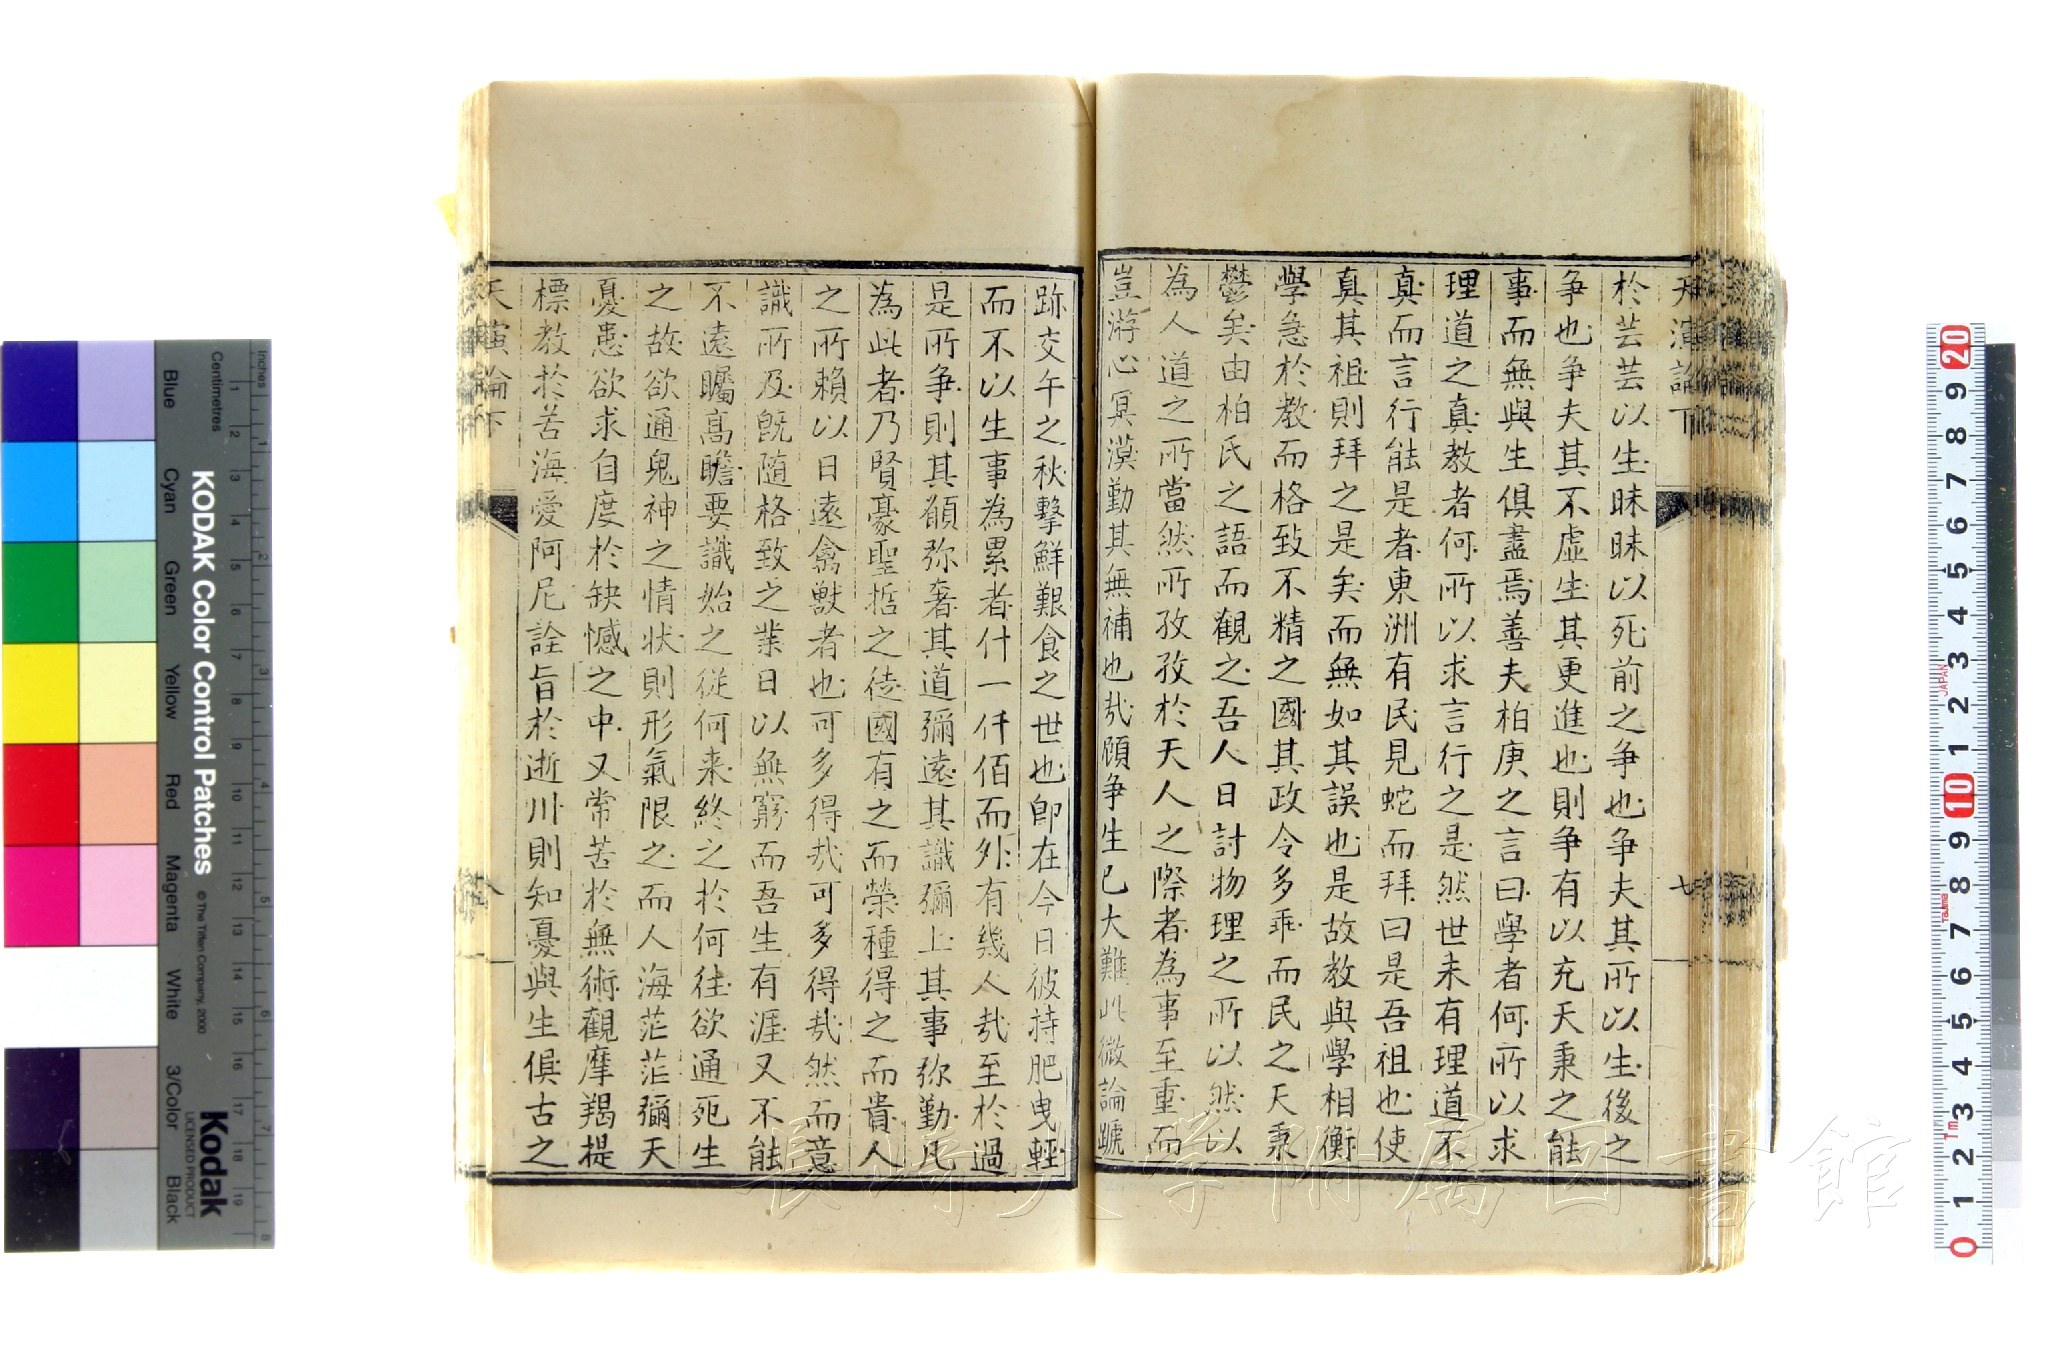 天演論下
七
於芸芸以生昧昧以死前之争也争夫其所以生後之
争也争夫其不虛生其更進也則争有以充天秉之能
事而無與生俱盡焉善夫柏庚之言曰學者何所以求
理道之真教者何所以求言行之是然世未有理道不
真而言行能是者東洲有民見蛇而拜曰是吾祖也使
真其祖則拜之是矣而無如其誤也是故教與學相衡
學急於教而格致不精之國其政令多乖而民之天秉
鬱矣由柏氏之語而觀之吾人日討物理之所以然以
為人道之所當然所孜孜於天人之際者為事至重而
豈游心冥漠勤其無補也哉顧争生已大難此微論蹏
跡交午之秋擊鮮艱食之世也卽在今日彼持肥曳輕
而不以生事為累者什一仟佰而外有幾人哉至於過
是所争則其願弥奢其道彌遠其識彌上其事弥勤凡
為此者乃賢豪聖哲之徒國有之而榮種得之而貴人
之所賴以日遠禽獸者也可多得哉可多得哉然而意
識所及旣随格致之業日以無窮而吾生有涯又不能
不遠矚高瞻要識始之從何来終之於何往欲通死生
之故欲通鬼神之情状則形氣限之而人海茫茫彌天
憂患欲求自度於缺憾之中又常苦於無術觀摩羯提
標教於苦海愛阿尼詮旨於逝川則知憂與生俱古之
天演論下
八
KODAK Color Control Patches
© The Tiffen Company, 2000
Kodak
LICENSED PRODUCT
Inches
Centimetres
Blue
Cyan
Green
Yellow
Red
Magenta
White
3/Color
Black
JAPAN
長崎大学附属図書館